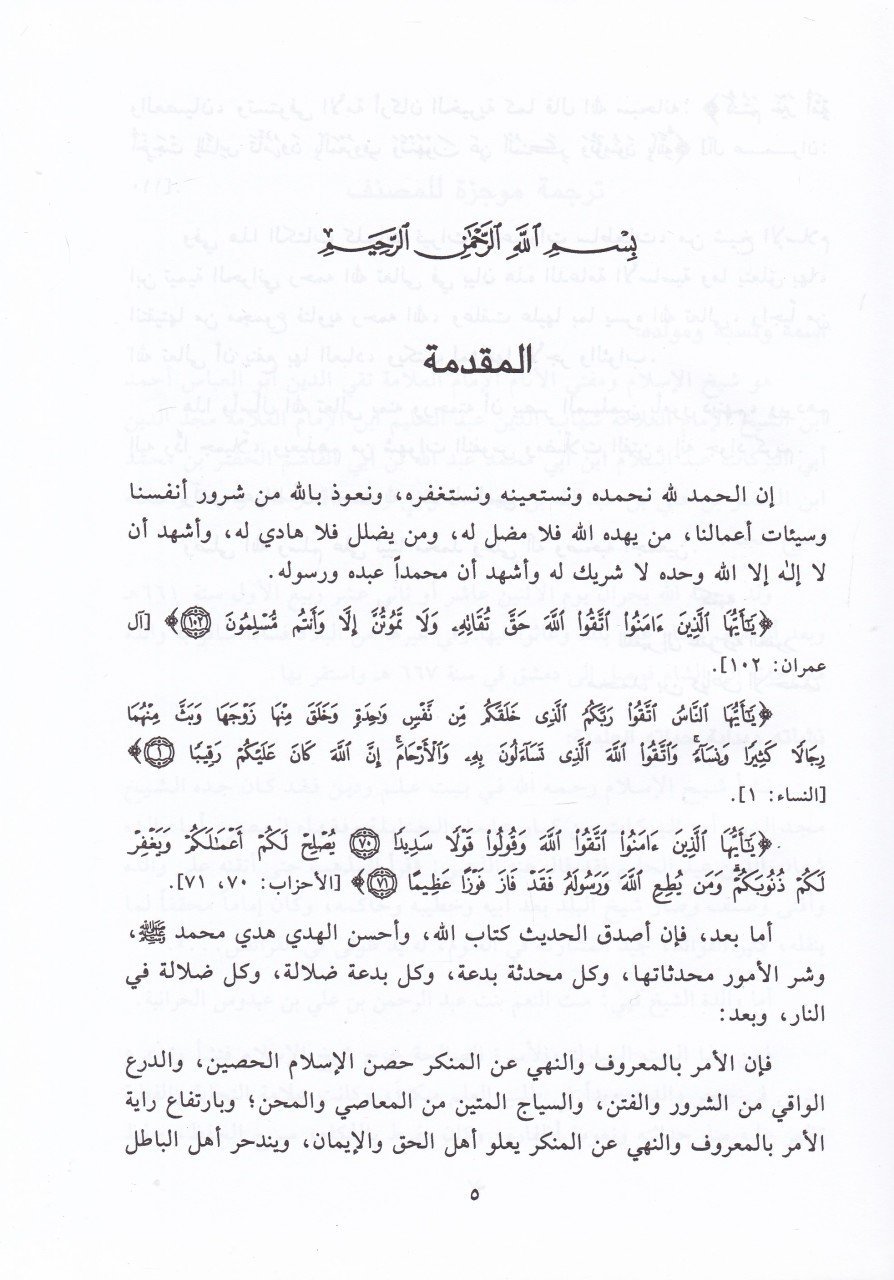 بِسْمِ ٱللَّهِ ٱلرَّحْمَٰنِ ٱلرَّحِيمِ
المقدمة
إن الحمد لله نحمده ونستعينه ونستغفره، ونعوذ بالله من شرور أنفسنا
وسيئات أعمالنا، من يهده الله فلا مضل له، ومن يضلل فلا هادي له، وأشهد أن
لا إلٰه إلا الله وحده لا شريك له وأشهد أن محمداً عبده ورسوله.
﴿يَٰٓأَيُّهَا ٱلَّذِينَ ءَامَنُوا۟ ٱتَّقُوا۟ ٱللَّهَ حَقَّ تُقَاتِهِۦ وَلَا تَمُوتُنَّ إِلَّا وَأَنتُم مُّسْلِمُونَ ١٠٢﴾ [آل
عمران: ١٠٢].
﴿يَٰٓأَيُّهَا ٱلنَّاسُ ٱتَّقُوا۟ رَبَّكُمُ ٱلَّذِى خَلَقَكُم مِّن نَّفْسٍ وَٰحِدَةٍ وَخَلَقَ مِنْهَا زَوْجَهَا وَبَثَّ مِنْهُمَا
رِجَالًا كَثِيرًا وَنِسَآءً ۚ وَٱتَّقُوا۟ ٱللَّهَ ٱلَّذِى تَسَآءَلُونَ بِهِۦ وَٱلْأَرْحَامَ ۚ إِنَّ ٱللَّهَ كَانَ عَلَيْكُمْ رَقِيبًا ١﴾
[النساء: ١].
﴿يَٰٓأَيُّهَا ٱلَّذِينَ ءَامَنُوا۟ ٱتَّقُوا۟ ٱللَّهَ وَقُولُوا۟ قَوْلًا سَدِيدًا ٧٠ يُصْلِحْ لَكُمْ أَعْمَٰلَكُمْ وَيَغْفِرْ
لَكُمْ ذُنُوبَكُمْ ۗ وَمَن يُطِعِ ٱللَّهَ وَرَسُولَهُۥ فَقَدْ فَازَ فَوْزًا عَظِيمًا ٧١﴾ [الأحزاب: ٧٠، ٧١].
أما بعد، فإن أصدق الحديث كتاب الله، وأحسن الهدي هدي محمد ﷺ،
وشر الأمور محدثاتها، وكل محدثة بدعة، وكل بدعة ضلالة، وكل ضلالة في
النار، وبعد:
فإن الأمر بالمعروف والنهي عن المنكر حصن الإسلام الحصين، والدرع
الواقي من الشرور والفتن، والسياج المتين من المعاصي والمحن؛ وبارتفاع راية
الأمر بالمعروف والنهي عن المنكر يعلو أهل الحق والإيمان، ويندحر أهل الباطل
٥